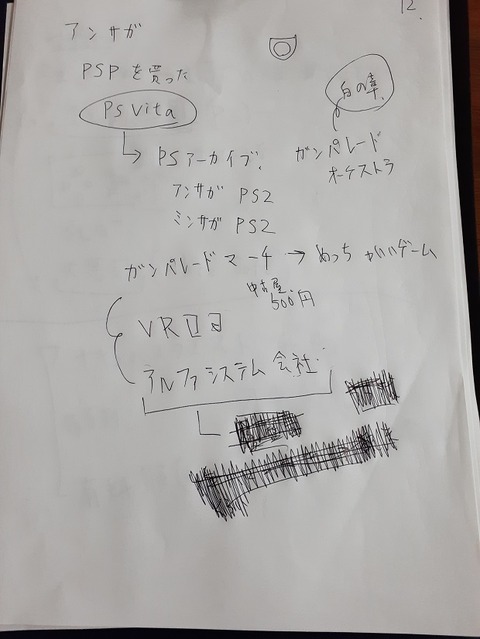 12.
アンサガ
PSPを買った
PS Vita
白の章
PSアーカイブ.
ガンパレード
オーケストラ
アンサガ PS2
ミンサガ PS2
ガンパレードマーチ → めっちゃいいゲーム
中古屋.
500円
アルファシステム会社.